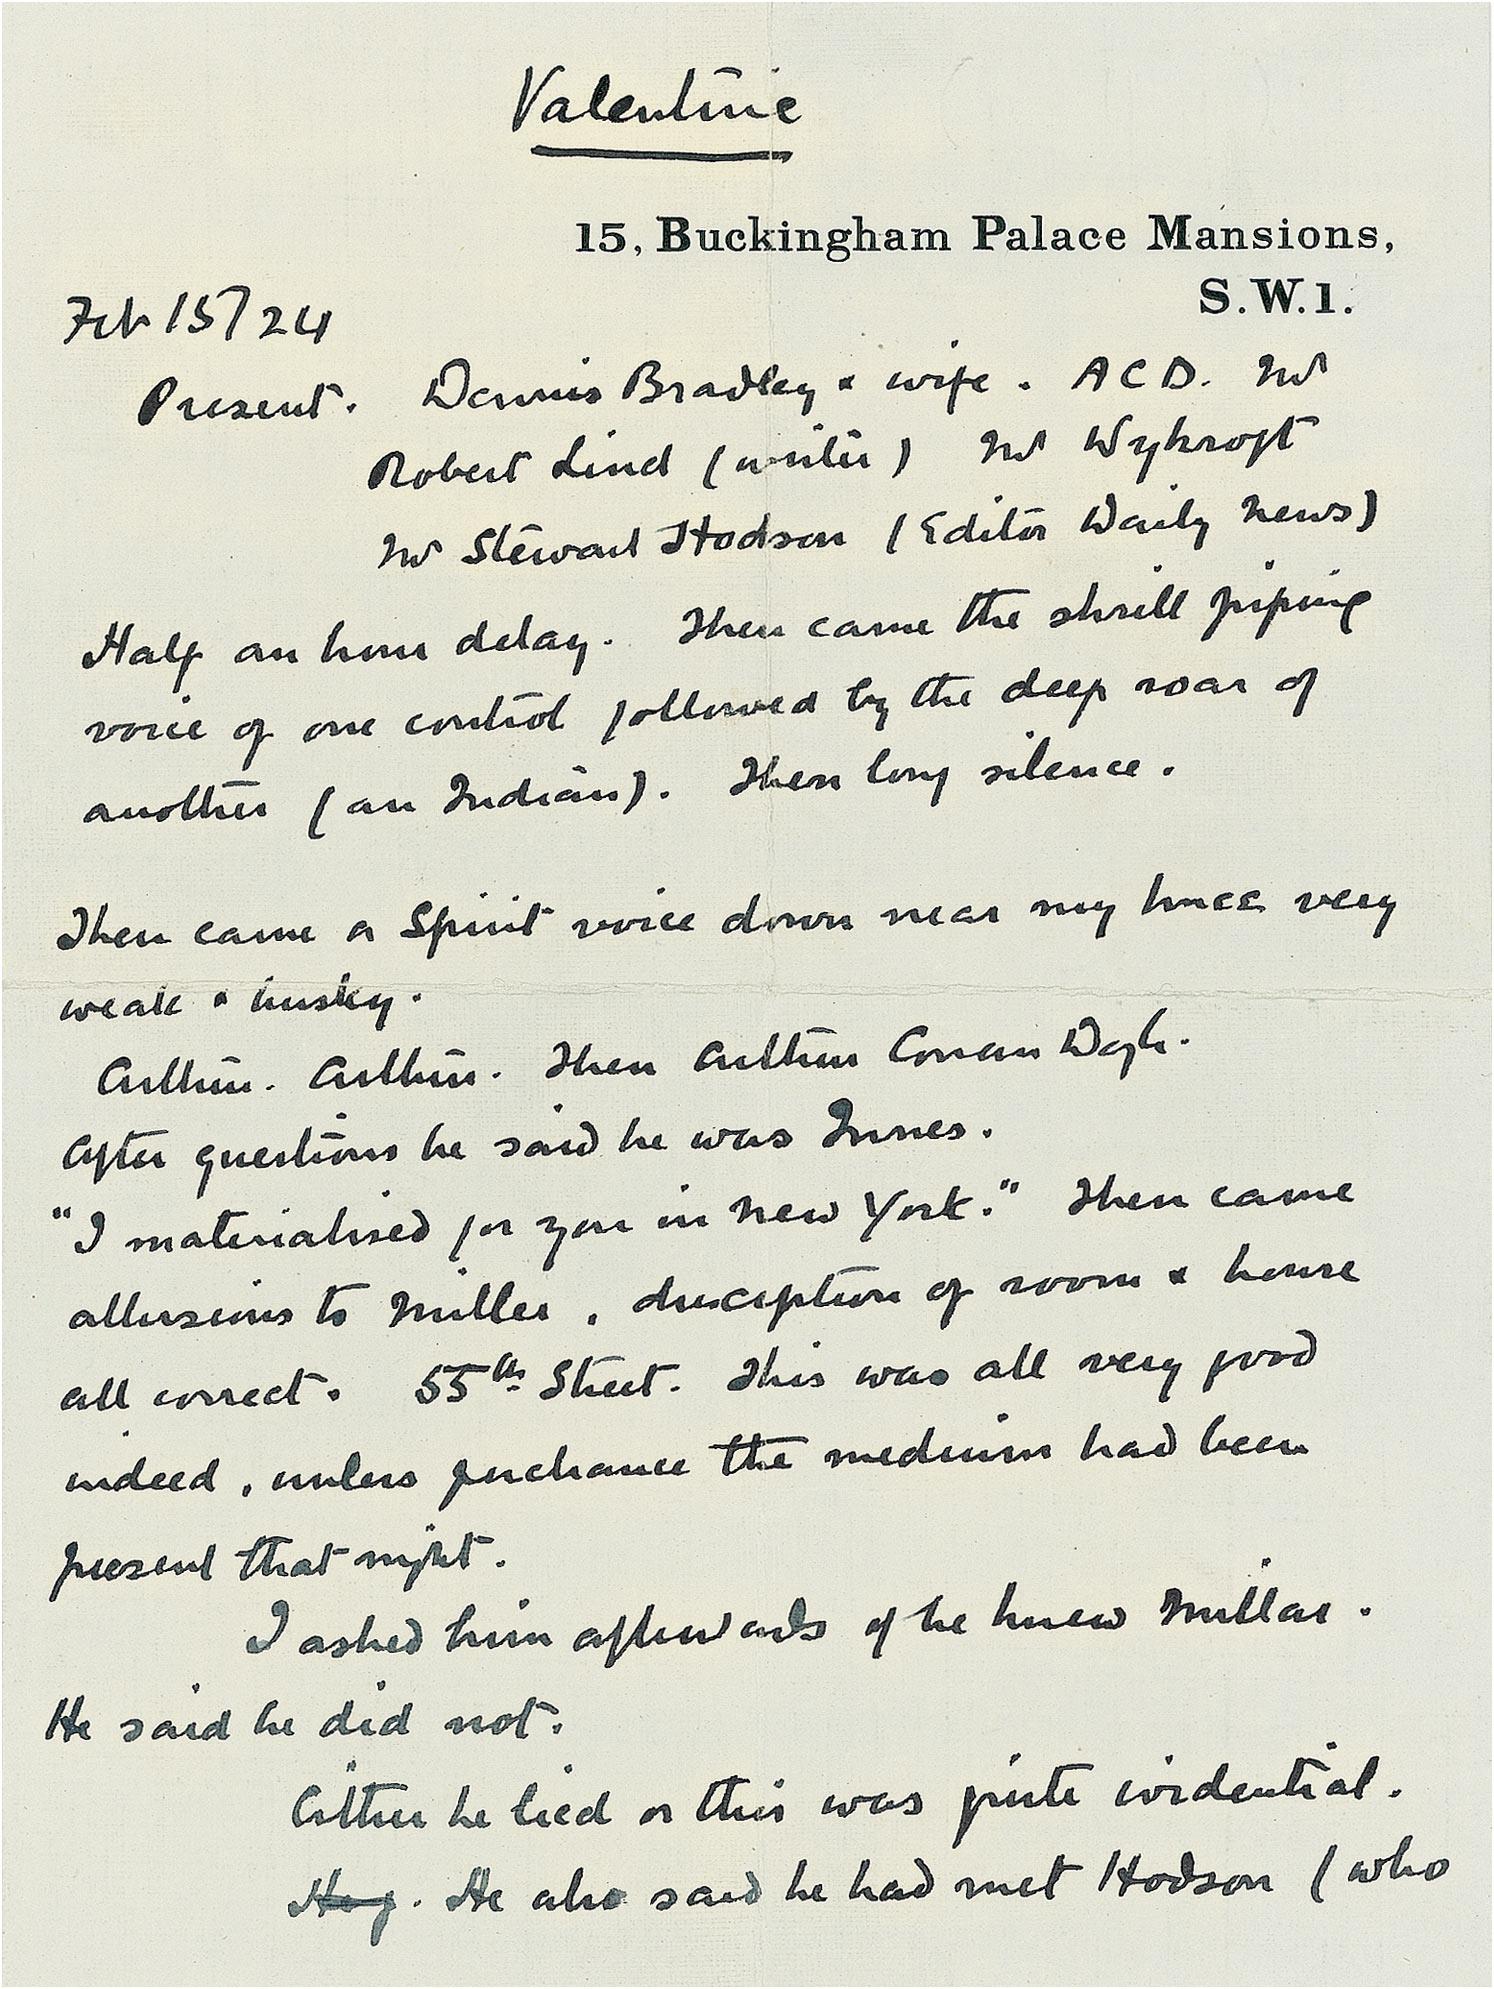 Valentine
15, Buckingham Palace Mansions,
S.W.1.
Feb 15/24
Present. Dennis Bradley & wife. ACD. Mr
Robert Lind (writer) Mr Wykroft
Mr Stewart Hodson (Editor Daily News)
Half an hour delay. Then came the shrill piping
voice of one control followed by the deep roar of
another (an Indian). Then long silence.
Then came a Spirit voice down near my knee very
weak & husky.
Arthur. Arthur. Then Arthur Conan Doyle.
After questions he said he was Innes.
"I materialised for you in New York." Then came
allusions to Miller, description of room & house
all correct. 55th Street. This was all very good
indeed, unless perchance the medium had been
present that night.
I asked him afterwards if he knew Millar.
He said he did not.
Either he lied or this was quite evidential.
He also said he had met Hodson (who